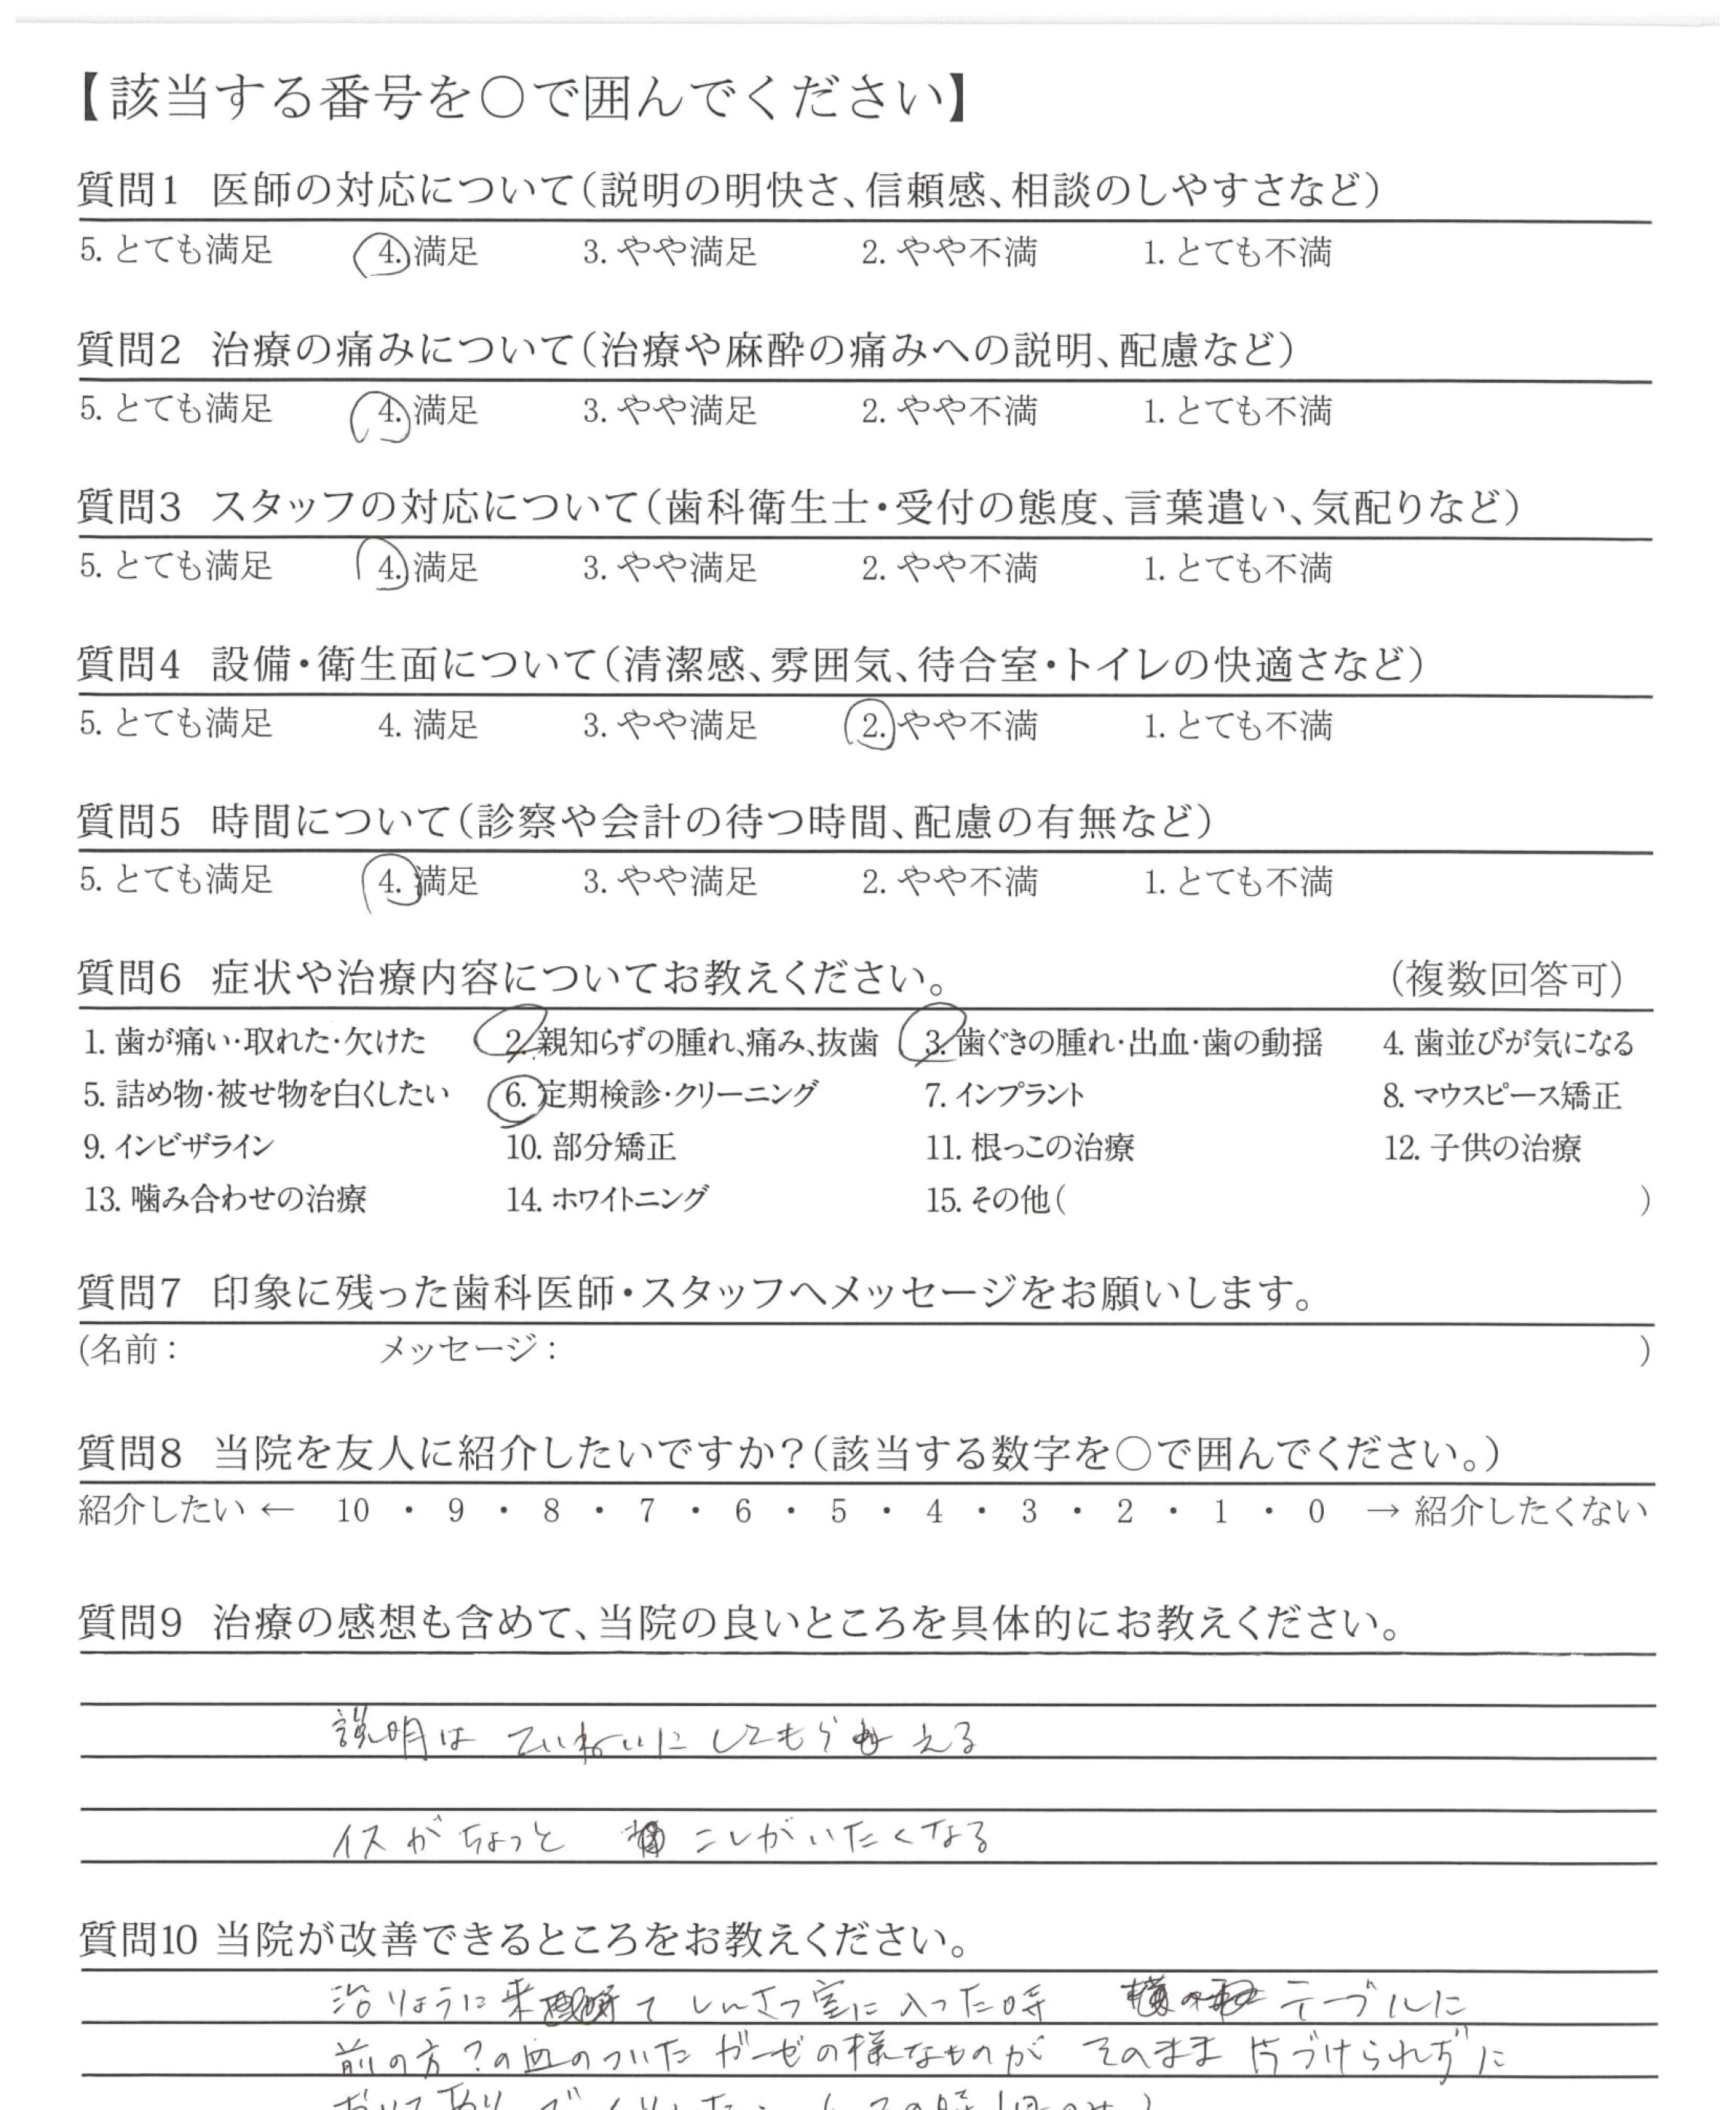 【該当する番号を○で囲んでください】
質問1 医師の対応について(説明の明快さ、信頼感、相談のしやすさなど)
5. とても満足 4. 満足 3. やや満足 2. やや不満 1. とても不満
質問2 治療の痛みについて(治療や麻酔の痛みへの説明、配慮など)
5. とても満足 4. 満足 3. やや満足 2. やや不満 1. とても不満
質問3 スタッフの対応について(歯科衛生士・受付の態度、言葉遣い、気配りなど)
5. とても満足 4. 満足 3. やや満足 2. やや不満 1. とても不満
質問4 設備・衛生面について(清潔感、雰囲気、待合室・トイレの快適さなど)
5. とても満足 4. 満足 3. やや満足 2. やや不満 1. とても不満
質問5 時間について(診察や会計の待つ時間、配慮の有無など)
5. とても満足 4. 満足 3. やや満足 2. やや不満 1. とても不満
質問6 症状や治療内容についてお教えください。 (複数回答可)
1. 歯が痛い・取れた・欠けた 2. 親知らずの腫れ、痛み、抜歯 3. 歯ぐきの腫れ・出血・歯の動揺 4. 歯並びが気になる
5. 詰め物・被せ物を白くしたい 6. 定期検診・クリーニング 7. インプラント 8. マウスピース矯正
9. インビザライン 10. 部分矯正 11. 根っこの治療 12. 子供の治療
13. 噛み合わせの治療 14. ホワイトニング 15. その他( )
質問7 印象に残った歯科医師・スタッフへメッセージをお願いします。
(名前: メッセージ: )
質問8 当院を友人に紹介したいですか?(該当する数字を○で囲んでください。)
紹介したい ← 10 ・ 9 ・ 8 ・ 7 ・ 6 ・ 5 ・ 4 ・ 3 ・ 2 ・ 1 ・ 0 → 紹介したくない
質問9 治療の感想も含めて、当院の良いところを具体的にお教えください。
説明は ていねいにしてもらえる
イスがちょっと こしがいたくなる
質問10 当院が改善できるところをお教えください。
治りょうに来て しんさつ室に入った時 テーブルに
前の方?の血のついた ガーゼの様なものが そのまま 片づけられずに